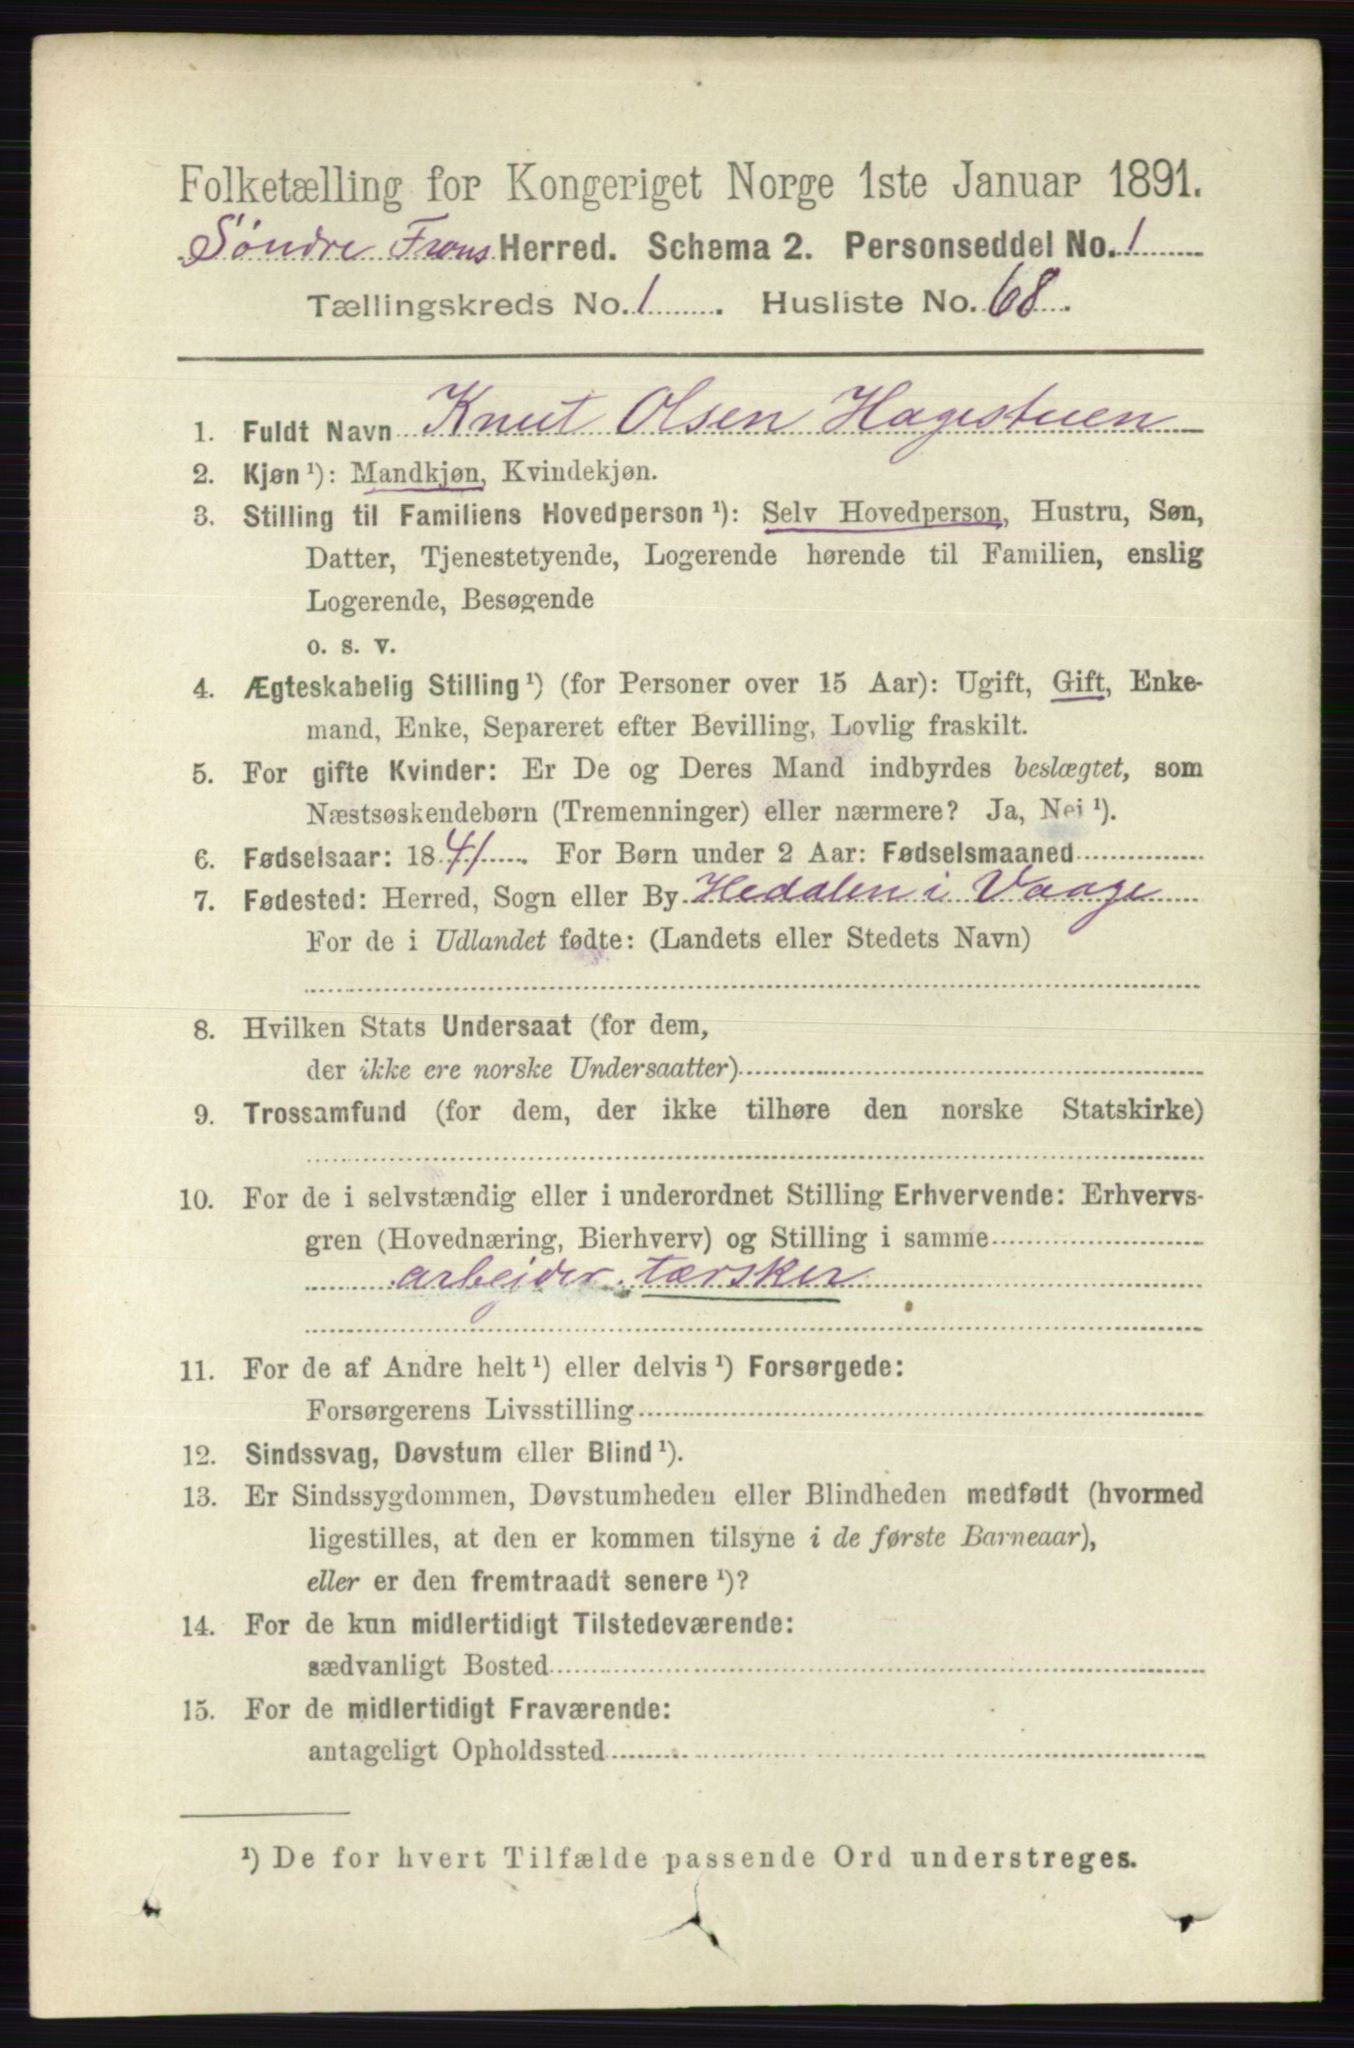 Folketælling for Kongeriget Norge 1ste Januar 1891.
Søndre Frons Herred. Schema 2. Personseddel No. 1
Tællingskreds No. 1. Husliste No. 68.
1. Fuldt Navn Knut Olsen Hagestuen
2. Kjøn ¹): Mandkjøn, Kvindekjøn.
3. Stilling til Familiens Hovedperson ¹): Selv Hovedperson, Hustru, Søn,
Datter, Tjenestetyende, Logerende hørende til Familien, enslig
Logerende, Besøgende
o. s. v.
4. Ægteskabelig Stilling ¹) (for Personer over 15 Aar): Ugift, Gift, Enke-
mand, Enke, Separeret efter Bevilling, Lovlig fraskilt.
5. For gifte Kvinder: Er De og Deres Mand indbyrdes beslægtet, som
Næstsøskendebørn (Tremenninger) eller nærmere? Ja, Nei ¹).
6. Fødselsaar: 1841. For Børn under 2 Aar: Fødselsmaaned
7. Fødested: Herred, Sogn eller By Hedalen i Vaage
For de i Udlandet fødte: (Landets eller Stedets Navn)
8. Hvilken Stats Undersaat (for dem,
der ikke ere norske Undersaatter)
9. Trossamfund (for dem, der ikke tilhøre den norske Statskirke)
10. For de i selvstændig eller i underordnet Stilling Erhvervende: Erhvervs-
gren (Hovednæring, Bierhverv) og Stilling i samme
arbeider. tærsker
11. For de af Andre helt ¹) eller delvis ¹) Forsørgede:
Forsørgerens Livsstilling
12. Sindssvag, Døvstum eller Blind ¹).
13. Er Sindssygdommen, Døvstumheden eller Blindheden medfødt (hvormed
ligestilles, at den er kommen tilsyne i de første Barneaar),
eller er den fremtraadt senere ¹)?
14. For de kun midlertidigt Tilstedeværende:
sædvanligt Bosted
15. For de midlertidigt Fraværende:
antageligt Opholdssted
¹) De for hvert Tilfælde passende Ord understreges.